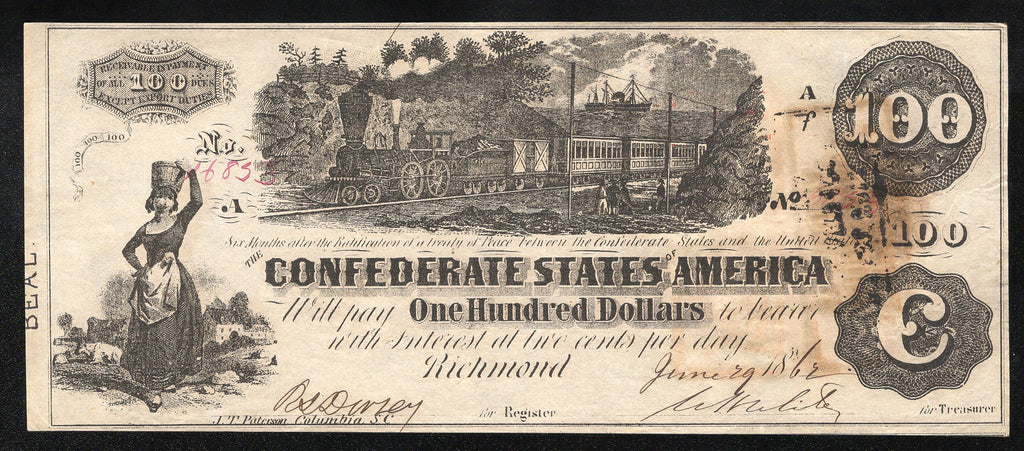 RECEIVABLE IN PAYMENT
OF ALL 100 DUES
EXCEPT EXPORT DUTIES
100 100 100
No.
A
A
f
100
No
100
Six Months after the Ratification of a treaty of Peace between the Confederate States and the United
THE CONFEDERATE STATES OF AMERICA
Will pay One Hundred Dollars to bearer
with Interest at two cents per day
Richmond June 29 1862
for Register
for Treasurer
J.T. Paterson Columbia S.C.
C
BEAL.